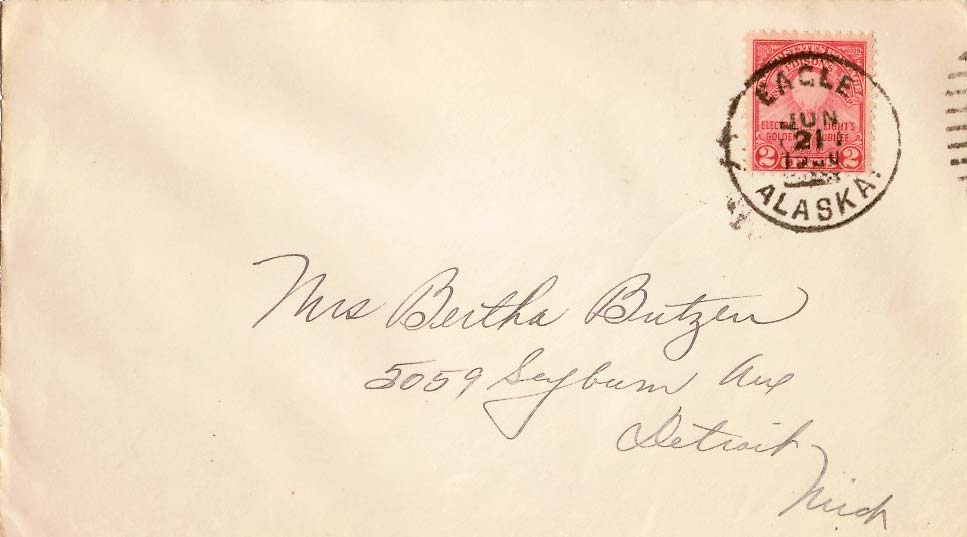 UNITED STATES POSTAGE
EDISON'S
ELECTRIC LIGHT'S
GOLDEN JUBILEE
2 2
EAGLE
JUN
21
ALASKA.
Mrs Bertha Butzen
5059 Seyburn Ave
Detroit
Mich